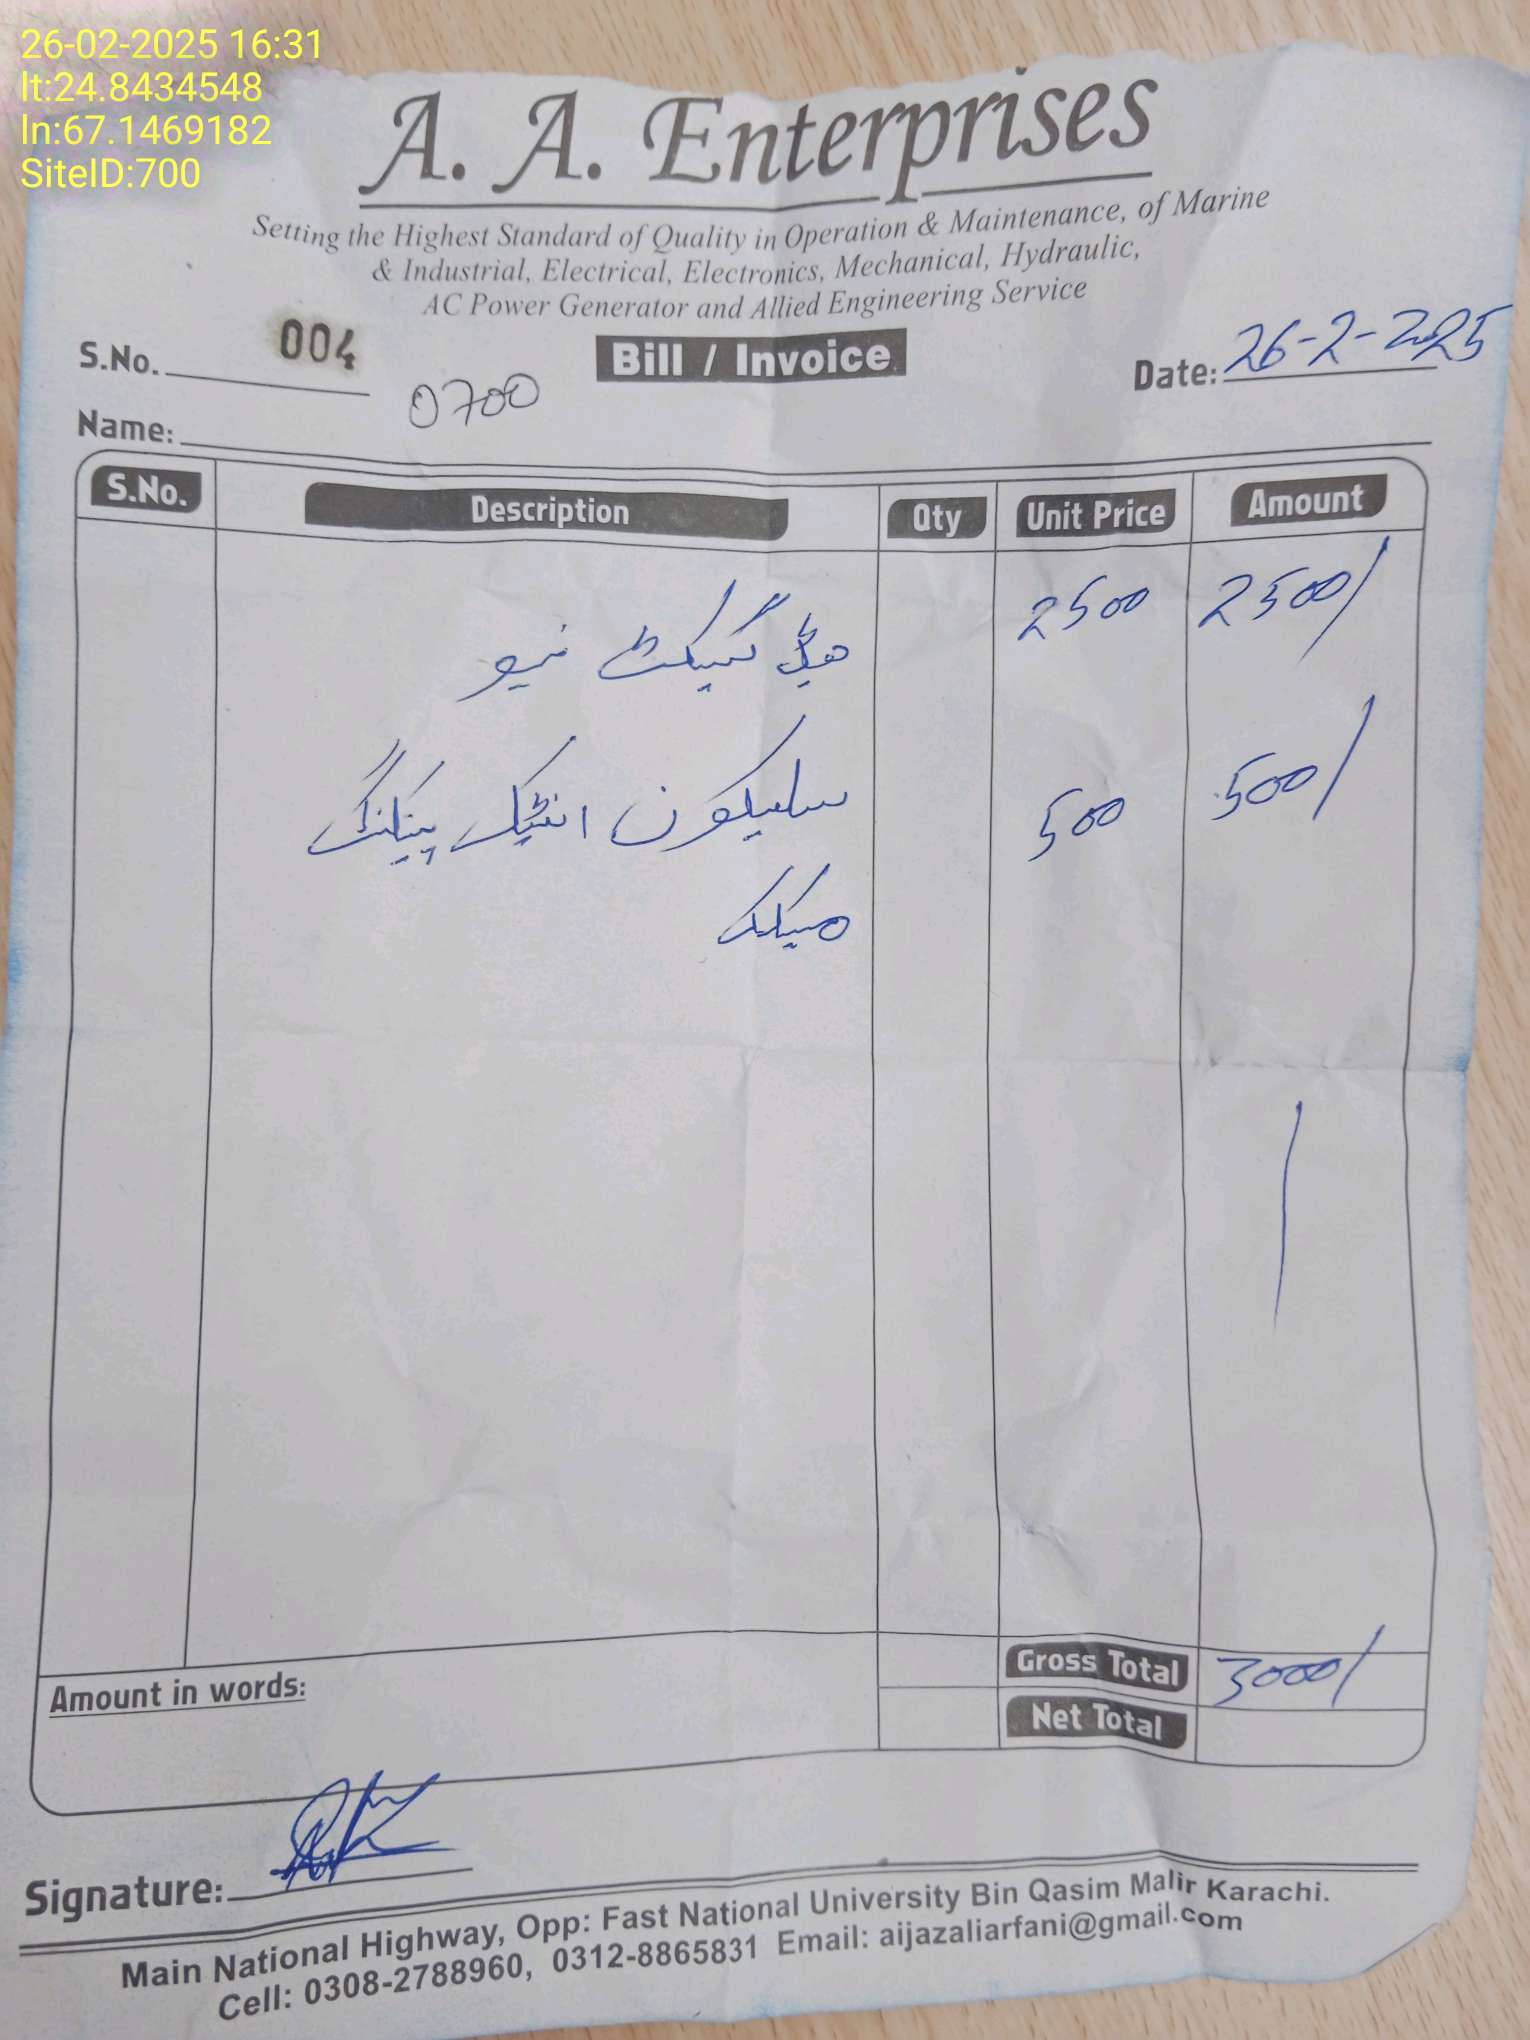 26-02-2025 16:31
lt:24.8434548
ln:67.1469182
SiteID:700
A. A. Enterprises
Setting the Highest Standard of Quality in Operation & Maintenance, of Marine
& Industrial, Electrical, Electronics, Mechanical, Hydraulic,
AC Power Generator and Allied Engineering Service
S.No. 004
Bill / Invoice
Date: 26-2-2025
Name: 0700
S.No. Description Qty Unit Price Amount
ہیڈ گیسکٹ نیو 2500 2500/
سلیکون 500 500/
Gross Total 3000/
Amount in words:
Net Total
Signature:
Main National Highway, Opp: Fast National University Bin Qasim Malir Karachi.
Cell: 0308-2788960, 0312-8865831 Email: aijazaliarfani@gmail.com